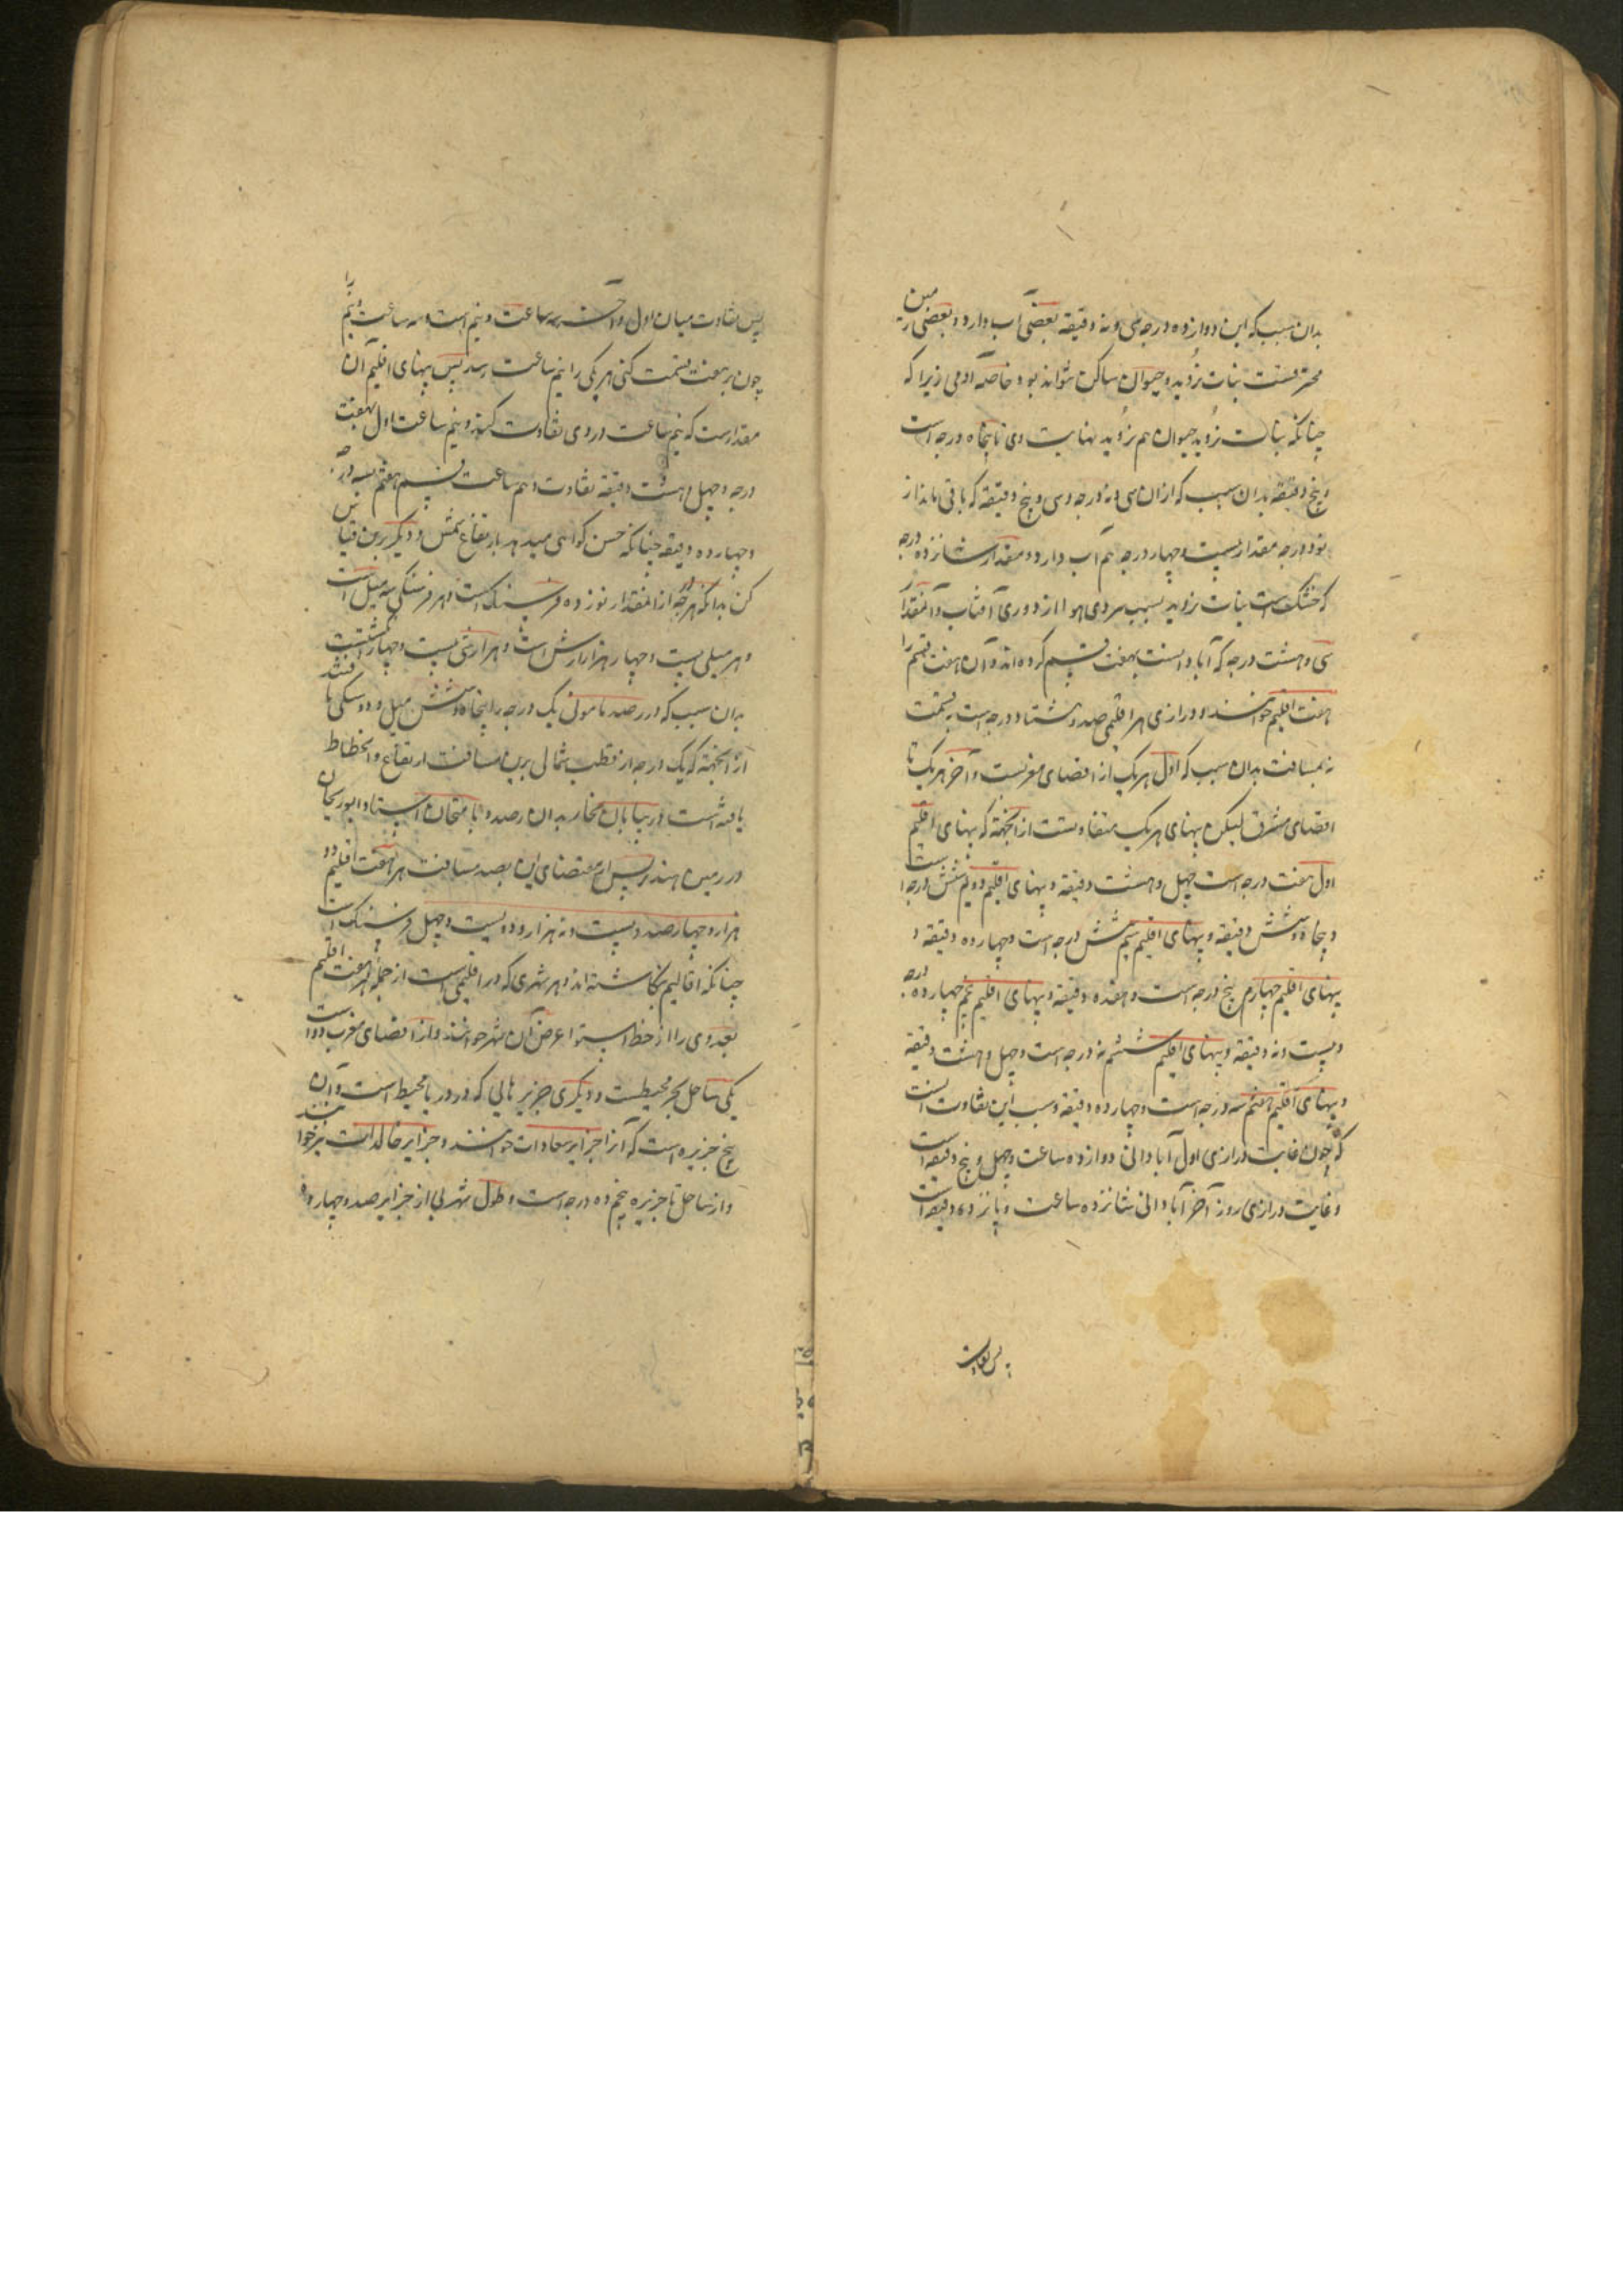 بدان سبب که این دوازده درجه سی و نه دقیقه بعضی آب دارد و بعضی زمین
محترقست نبات نروید و حیوان ساکن نتواند بود خاصه آدمی زیرا که
چنانکه نبات نروید حیوان هم نروید نهایت وی تا پنجاه درجه است
و پنج دقیقه بدان سبب که ازان سی و نه درجه و سی و پنج دقیقه که باقی ماند از
نود درجه مقدار بیست و چهار درجه هم آب دارد و مقدار شانزده درجه
که خشک است نبات نروید بسبب سردی هوا از دوری آفتاب و آنمقدار
سی و هشت درجه که آبادانست بهفت قسم کرده‌اند و آن هفت قسم را
هفت اقلیم خوانند و درازی هر اقلیمی صد و هشتاد درجه است به قسمت
نه بمسافت بدان سبب که اول هر یک از اقصای مغربست و آخر هر یک تا
اقصای مشرق لیکن پهنای هر یک متفاوتست از آنجهة که پهنای اقلیم
اول هفت درجه است چهل و هشت دقیقه و پهنای اقلیم دویم شش درجه است
و پنجاه و شش دقیقه و پهنای اقلیم سیم شش درجه است و چهارده دقیقه و
پهنای اقلیم چهارم پنج درجه است و هفده دقیقه و پهنای اقلیم پنجم چهارده درجه
و بیست و نه دقیقه و پهنای اقلیم ششم نه درجه است و چهل و هشت دقیقه
و پهنای اقلیم هفتم سه درجه است و چهارده دقیقه و سبب این تفاوت آنست
که چون غایت درازی اول آبادانی دوازده ساعت و چهل و پنج دقیقه است
و غایت درازی روز آخر آبادانی شانزده ساعت و پانزده دقیقه است
پس تفاوت
پس تفاوت میان اول و آخر سه ساعت و نیم است و سه ساعت و نیم را
چون بر هفت قسمت کنی هر یکی را نیم ساعت رسد پس پهنای اقلیم آن
مقدارست که نیم ساعت در وی تفاوت کند و نیم ساعت اول بهفت
درجه و چهل و هشت دقیقه تفاوت و نیم ساعت قسم هفتم بسه درجه
و چهارده دقیقه چنانکه حس گواهی میدهد بارتفاع شمس و دیگر برین قیاس
کن بدانکه هر درجه از آنمقدار نوزده فرسنگ است و هر فرسنگی سه میل است
و هر میلی بیست و چهار هزار ارش است و هر ارشی بیست و چهار انگشتست
بدان سبب که در رصد مامونی یک درجه را پنجاه و شش میل و دو سیکی یافتند
از آنجهة که یک درجه از قطب شمالی برین مسافت ارتفاع و انحطاط
یافته است در بیابان سنجار بدان رصد و با متحان استاد ابوریحان
در زمین هند پس از مقتضای این بصد مسافت هر هفت اقلیم دو
هزار و چهارصد و بیست و نه هزار و دویست و چهل فرسنگ است
چنانکه اقالیم نگاشته‌اند و هر شهری که در اقلیمی است از جمله هفت اقلیم
بعد وی را از خط استوا عرض آن شهر خوانند و از اقصای مغرب دو است
یکی ساحل بحر محیطست و دیگری جزیرهایی که در دریا محیط است و آن
پنج جزیره است که آنرا جزایر سعادات خوانند و جزایر خالدات نیز خوانند
و از ساحل تا جزیره پنجم ده درجه است و طول شهر بی از جزایر صد و چهارده